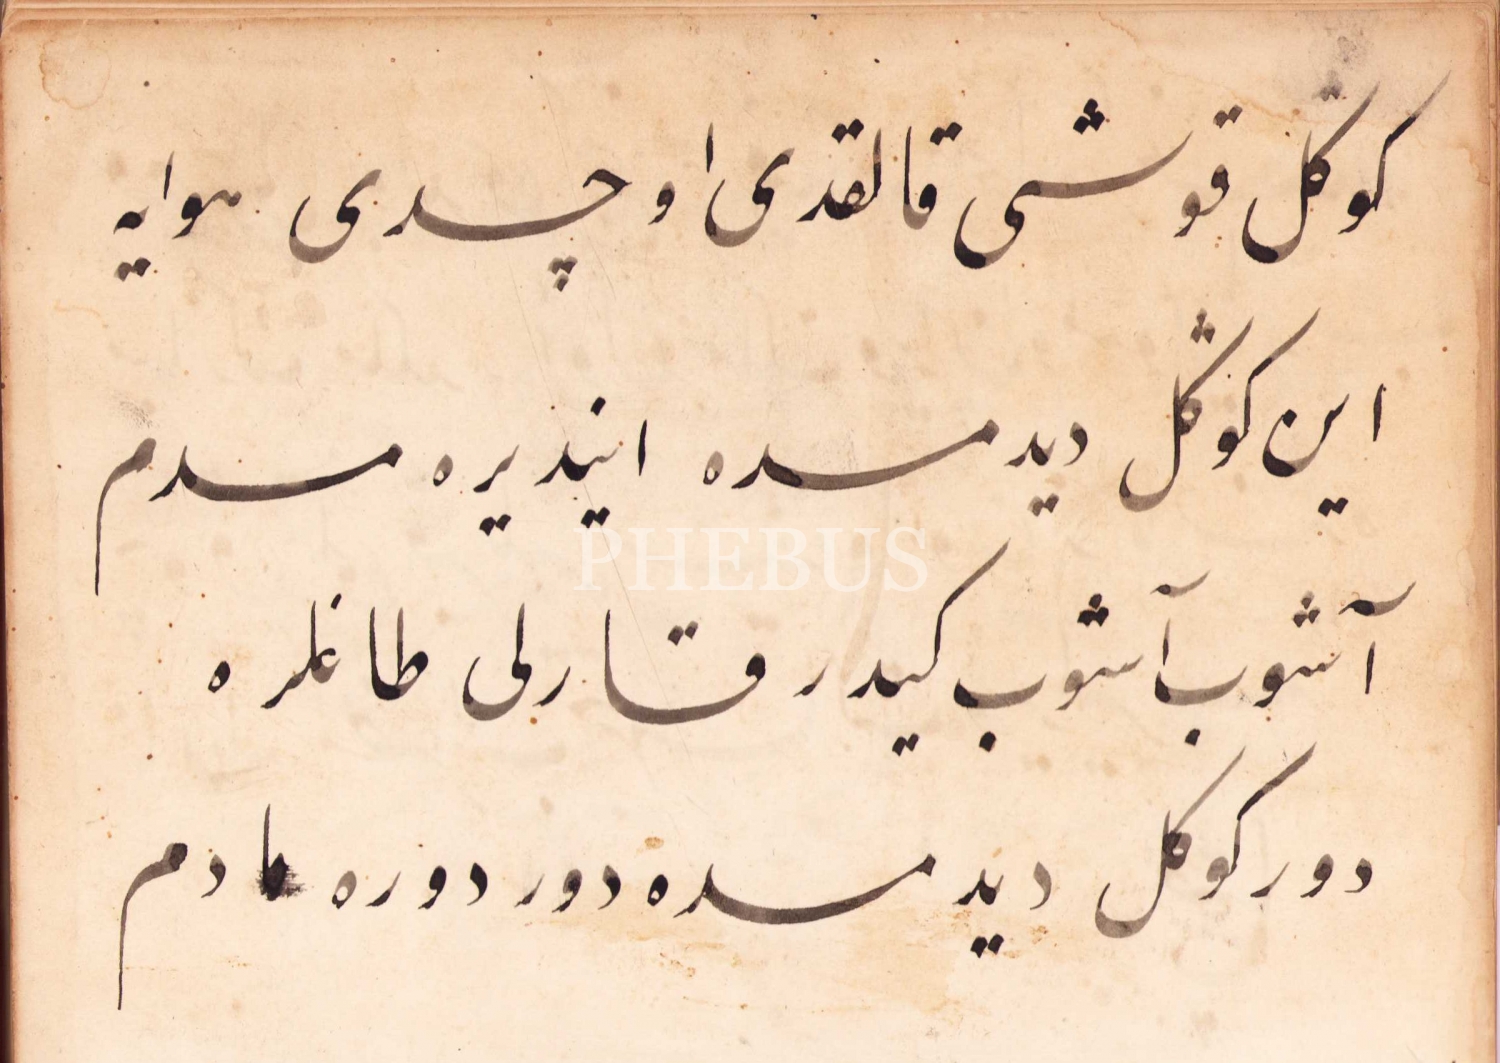 كوڭل قوشى قالقدى اوچدى هوايه
اين كوڭل ديدمسده اينديره مدم
آشوب آشوب كيدر قارلى طاغلره
دور كوكل ديدمسده دور دوره مادم
PHEBUS